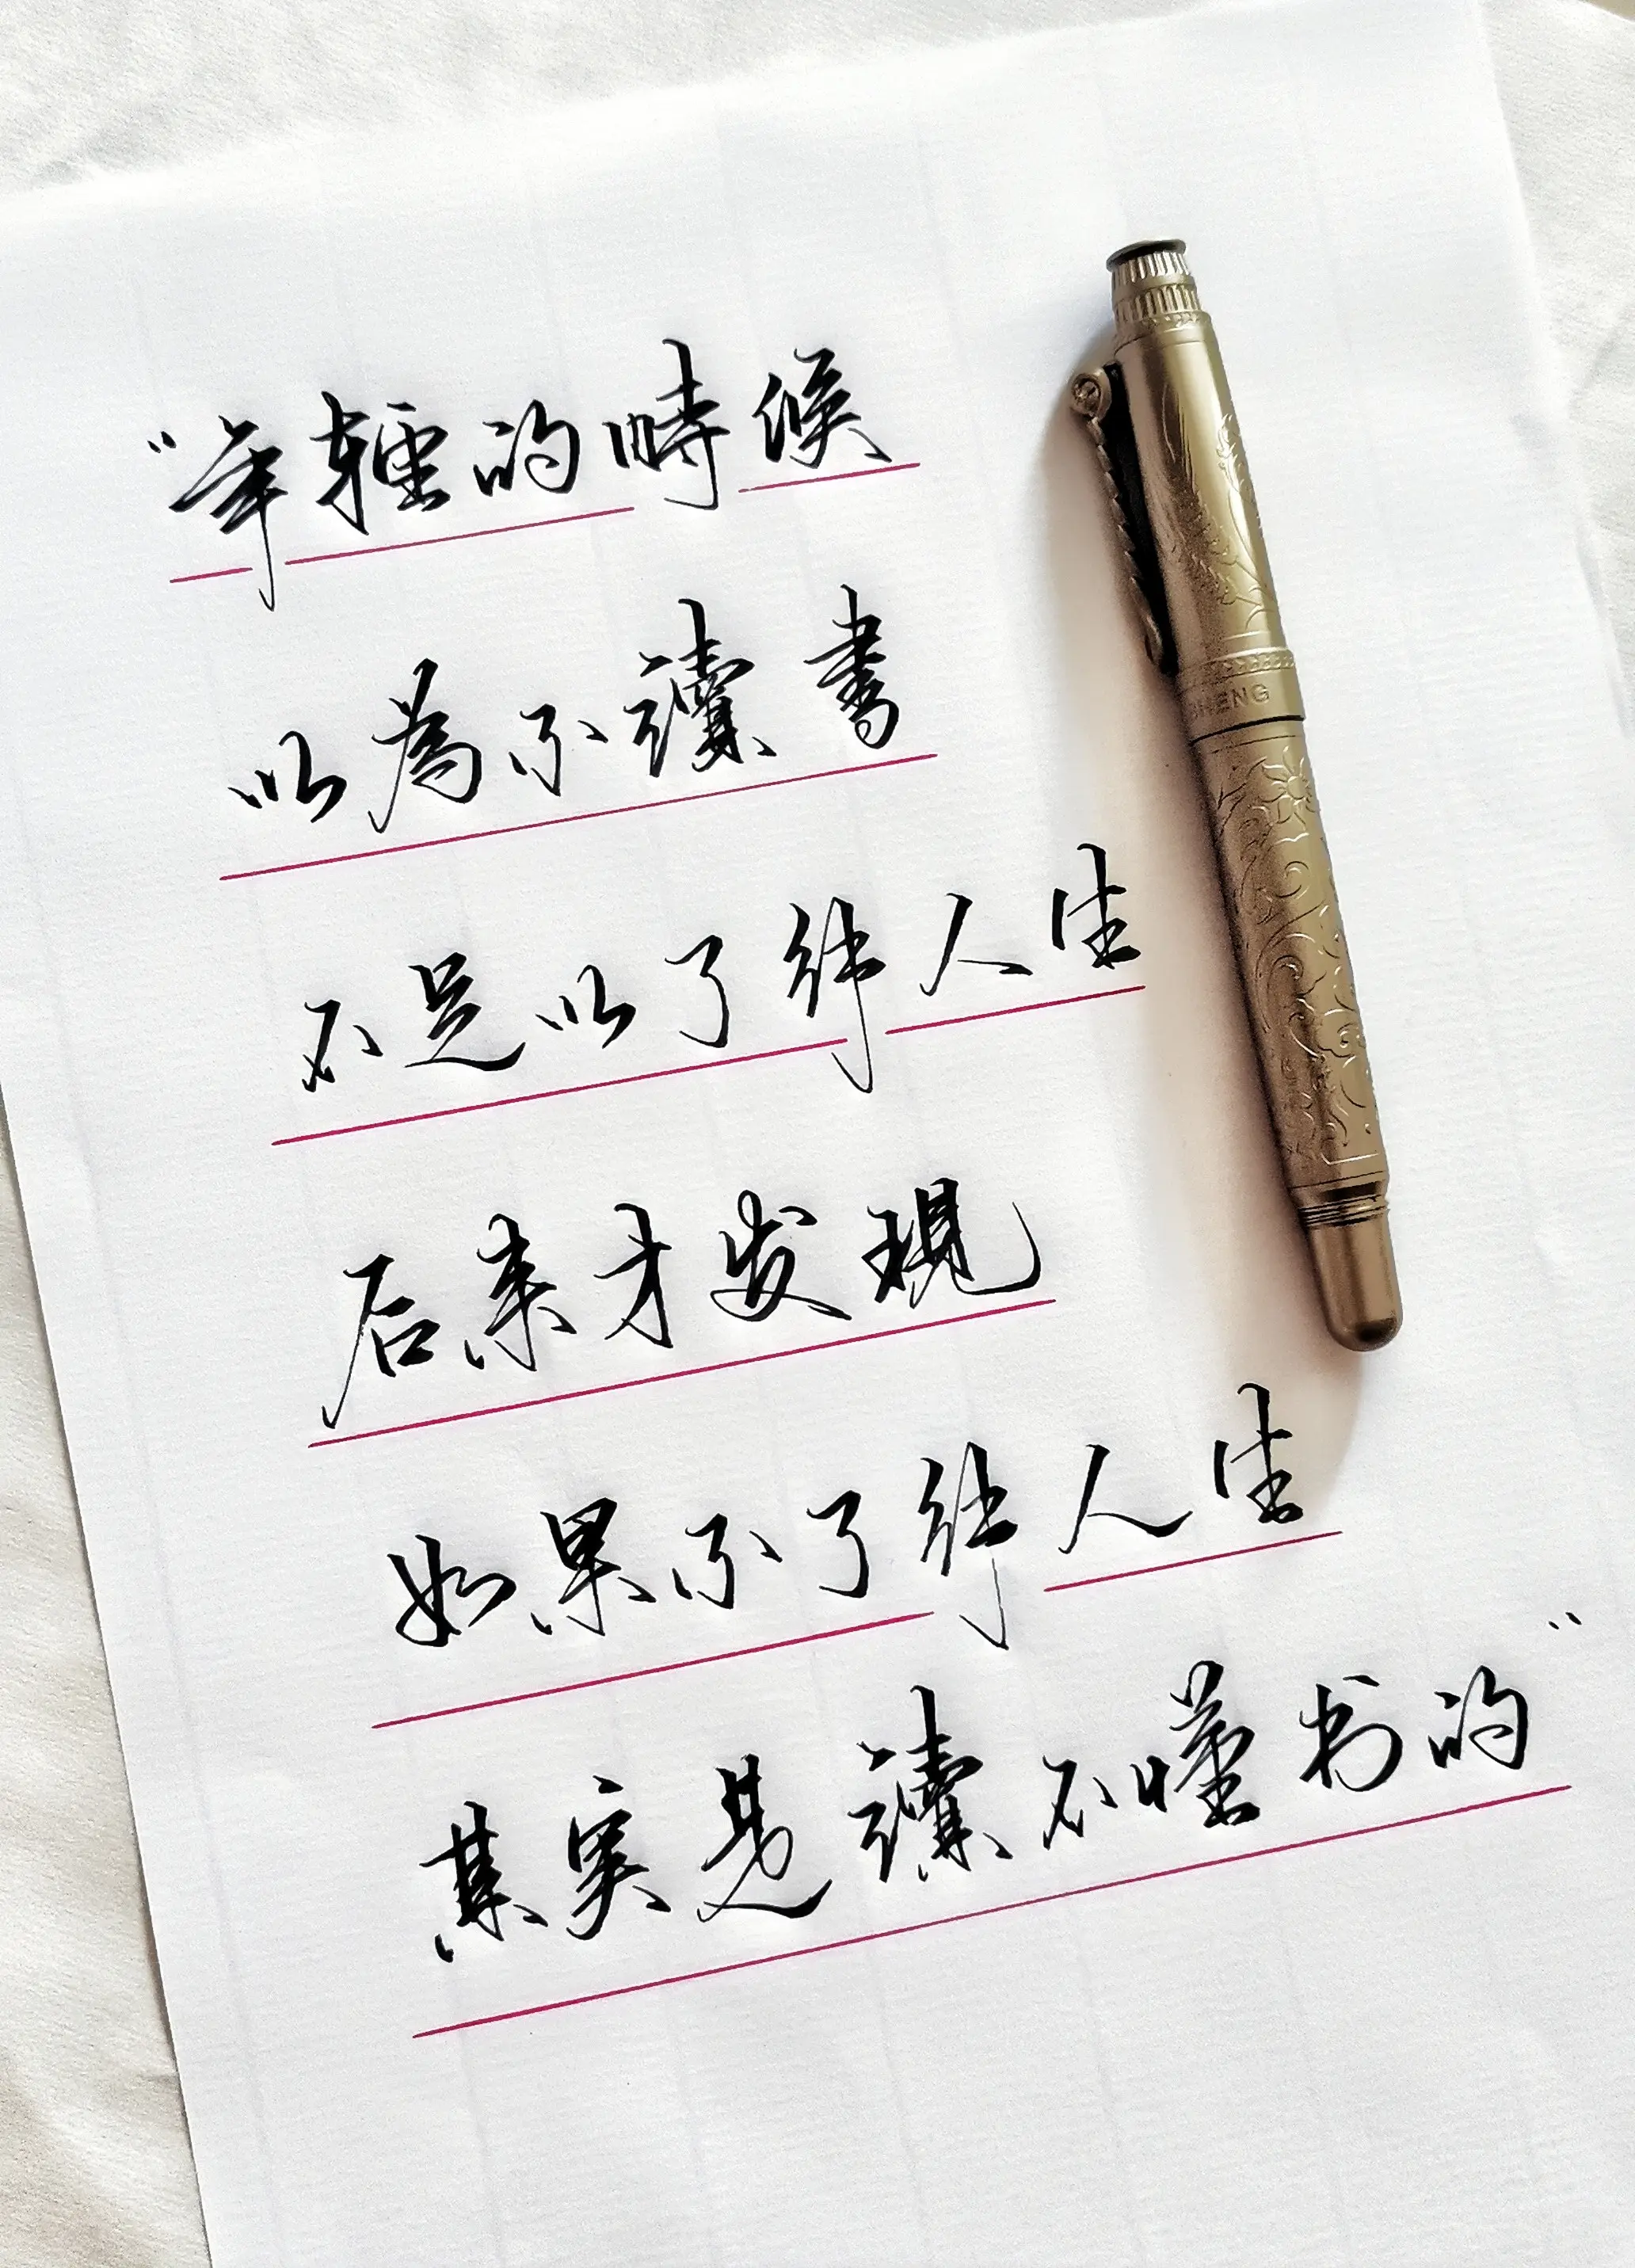 “年轻的時候
以為不讀書
不足以了解人生
后来才发現
如果不了解人生
其实是讀不懂书的”
HENG